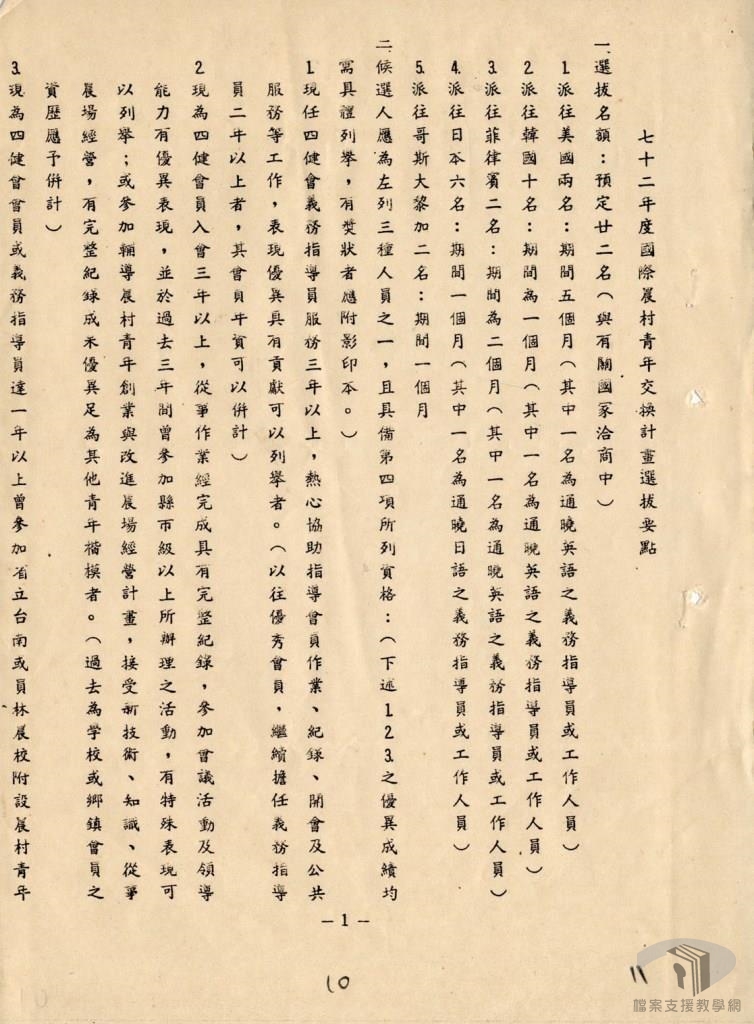 七十二年度國際農村青年交換計畫選拔要點
一、選拔名額：預定廿二名（與有關國家洽商中）
1.派往美國兩名：期間五個月（其中一名為通曉英語之義務指導員或工作人員）
2.派往韓國十名：期間為一個月（其中一名為通曉英語之義務指導員或工作人員）
3.派往菲律賓二名：期間為二個月（其中一名為通曉英語之義務指導員或工作人員）
4.派往日本六名：期間一個月（其中一名為通曉日語之義務指導員或工作人員）
5.派往哥斯大黎加二名：期間一個月
二、候選人應為左列三種人員之一，且具備第四項所列資格：（下述1.2.3.之優異成績均
需具體列舉，有獎狀者應附影印本。）
1.現任四健會義務指導員服務三年以上，熱心協助指導會員作業、紀錄、開會及公共
服務等工作，表現優異具有貢獻可以列舉者。（以往優秀會員，繼續擔任義務指導
員二年以上者，其會員年資可以併計）
2.現為四健會員入會三年以上，從事作業經完成具有完整紀錄，參加會議活動及領導
能力有優異表現，並於過去三年間曾參加縣市級以上所辦理之活動，有特殊表現可
以列舉；或參加輔導農村青年創業與改進農場經營計畫，接受新技術、知識、從事
農場經營，有完整紀錄成果優異足為其他青年楷模者。（過去為學校或鄉鎮會員之
資歷應予併計）
3.現為四健會會員或義務指導員達一年以上曾參加省立台南或員林農校附設農村青年
－1－
10
11
檔案支援教學網